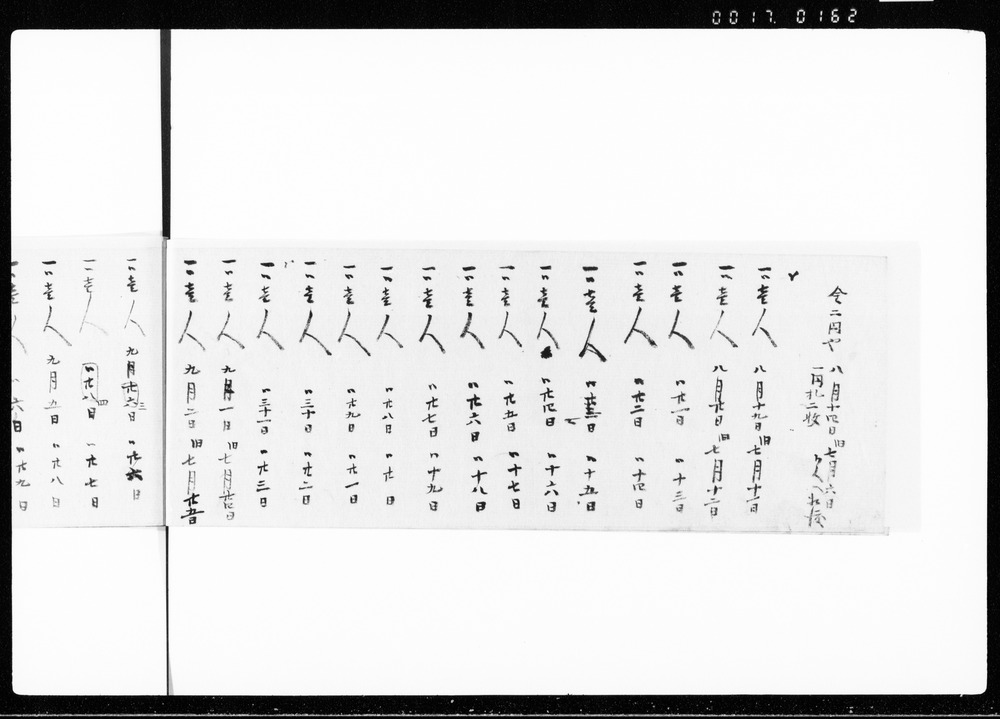 0017.0162
金二円や 八月十四日 旧七月六日
一円札二枚
一〃壱人 八月十九日 旧七月十一日
一〃壱人 八月廿日 旧七月十二日
一〃壱人 〃廿一日 〃十三日
一〃壱人 〃廿二日 〃十四日
一〃壱人 〃廿三日 〃十五日
一〃壱人 〃廿四日 〃十六日
一〃壱人 〃廿五日 〃十七日
一〃壱人 〃廿六日 〃十八日
一〃壱人 〃廿七日 〃十九日
一〃壱人 〃廿八日 〃廿日
一〃壱人 〃廿九日 〃廿一日
一〃壱人 〃三十日 〃廿二日
一〃壱人 〃三十一日 〃廿三日
一〃壱人 九月一日 旧七月廿四日
一〃壱人 九月二日 旧七月廿五日
一〃壱人 九月廿六日 三 〃廿六日
一〃壱人 〃廿八日 四 〃廿七日
一〃壱人 九月五日 〃廿八日
一〃壱人 〃六日 〃廿九日